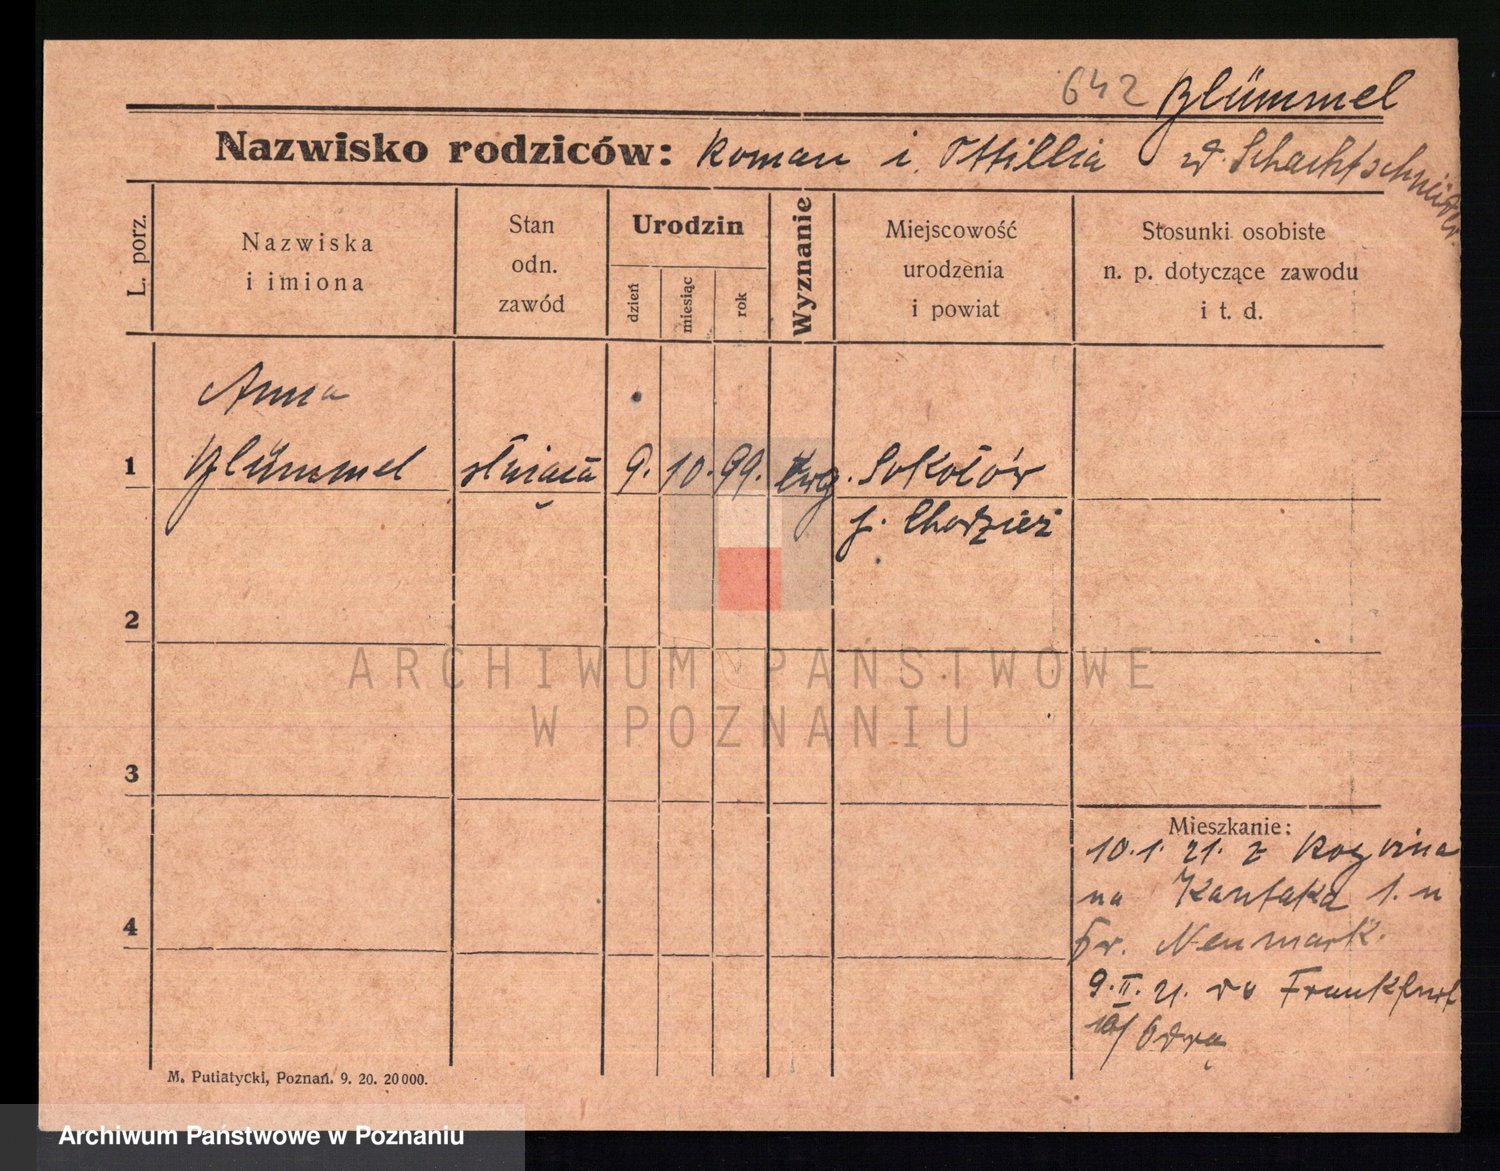 642 Blümmel
Nazwisko rodziców: Roman i Ottillia z d. Schachtschneider
L. porz.
Nazwiska
i imiona
Stan
odn.
zawód
Urodzin
dzień
miesiąc
rok
Wyznanie
Miejscowość
urodzenia
i powiat
Stosunki osobiste
n. p. dotyczące zawodu
i t. d.
Anna
1 Blümmel służąca 9. 10. 99. Ewg. Sokołów
p. Chodzież
2
ARCHIWUM PAŃSTWOWE
W POZNANIU
3
Mieszkanie:
10.1. 21. z
na Kantaka 1. u
Neumark.
4
9.II.21. do Frankfurt
n/Odrą
M. Putiatycki, Poznań. 9. 20. 20000.
Archiwum Państwowe w Poznaniu